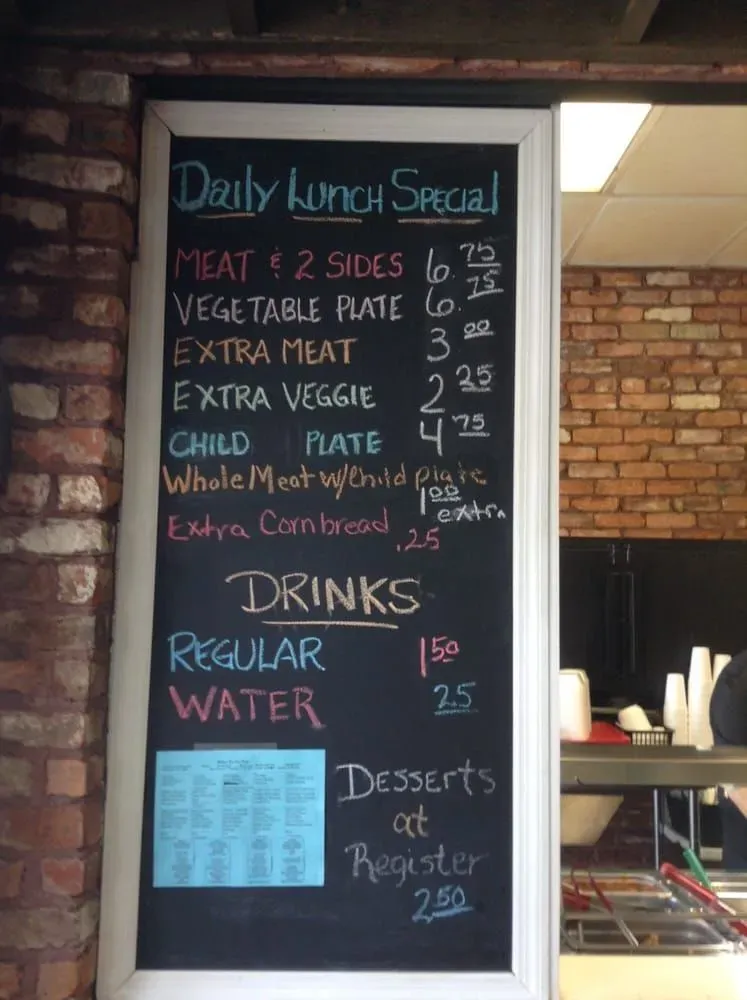 Daily Lunch Special
MEAT & 2 SIDES 6.75
VEGETABLE PLATE 6.75
EXTRA MEAT 3 00
EXTRA VEGGIE 2 25
CHILD PLATE 4 75
Whole Meat w/Child plate
1 00 extra
Extra Cornbread .25
DRINKS
REGULAR 1 50
WATER 25
Desserts
at
Register
2 50